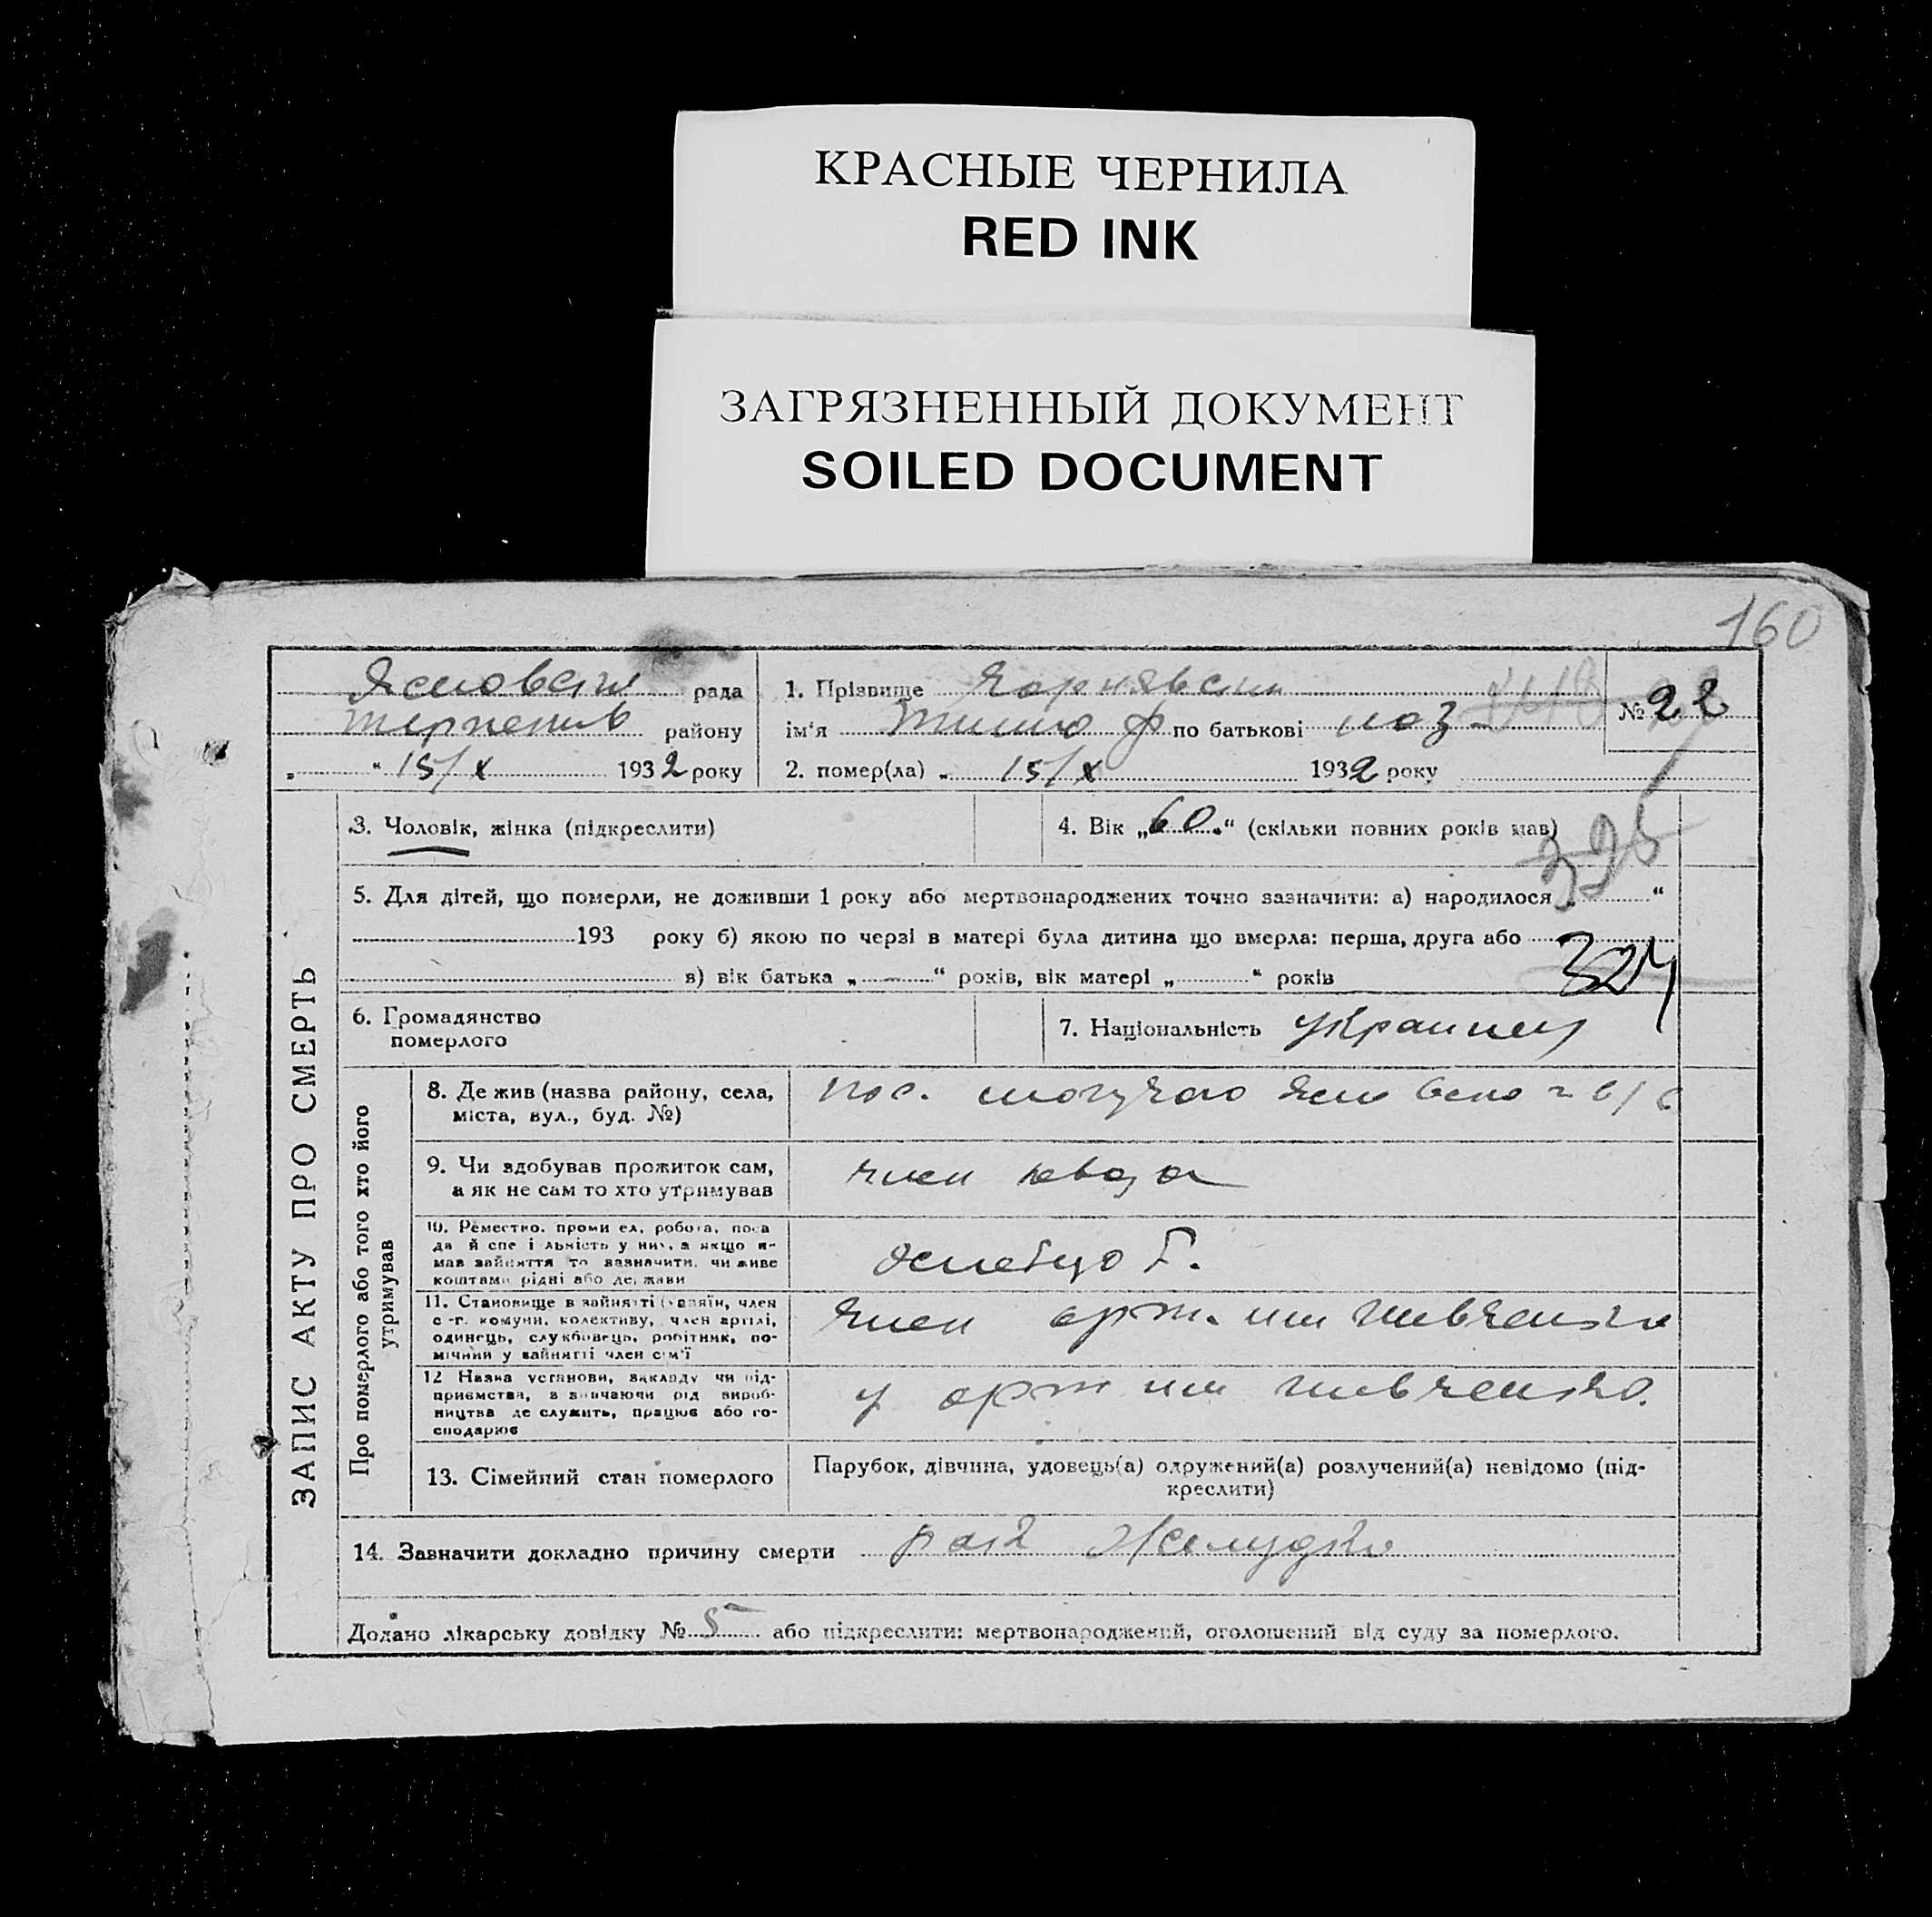 КРАСНЫЕ ЧЕРНИЛА
RED INK
ЗАГРЯЗНЕННЫЙ ДОКУМЕНТ
SOILED DOCUMENT
160
рада
району
„ “ 15/X 1932 року
1. Прізвище
№ 22
ім'я по батькові
2. помер(ла) „ 15/X 1932 року
ЗАПИС АКТУ ПРО СМЕРТЬ
3. Чоловік, жінка (підкреслити)
4. Вік „60“ (скільки повних років мав)
325
5. Для дітей, що померли, не доживши 1 року або мертвонароджених точно зазначити: а) народилося „ “
193 року б) якою по черзі в матері була дитина що вмерла: перша, друга або
в) вік батька „ “ років, вік матері „ “ років
324
6. Громадянство
померлого
7. Національність Украинец
Про померлого або того хто його
утримував
8. Де жив (назва району, села,
міста, вул., буд. №)
пос.
9. Чи здобував прожиток сам,
а як не сам то хто утримував
член
10. Реместно, проми ел, робота, поса
да й спе і льність у них, а якщо н-
мав зайняття то зазначити, чи живе
коштами рідні або держави
11. Становище в зайнятті (хазяїн, член
с-г. комуни, колективу, член артілі,
одинець, службовець, робітник, по-
мічний у зайнятті член сім'ї
член арт. им Шевченко
12 Назва установи, закладу чи під-
приємства, зазначаючи рід вироб-
ництва де служить, працює або го-
сподарює
у арт им Шевченко.
13. Сімейний стан померлого
Парубок, дівчина, удовець(а) одружений(а) розлучений(а) невідомо (під-
креслити)
14. Зазначити докладно причину смерти рак Желудка
Додано лікарську довідку № 5 або підкреслити: мертвонароджений, оголошений від суду за померлого.